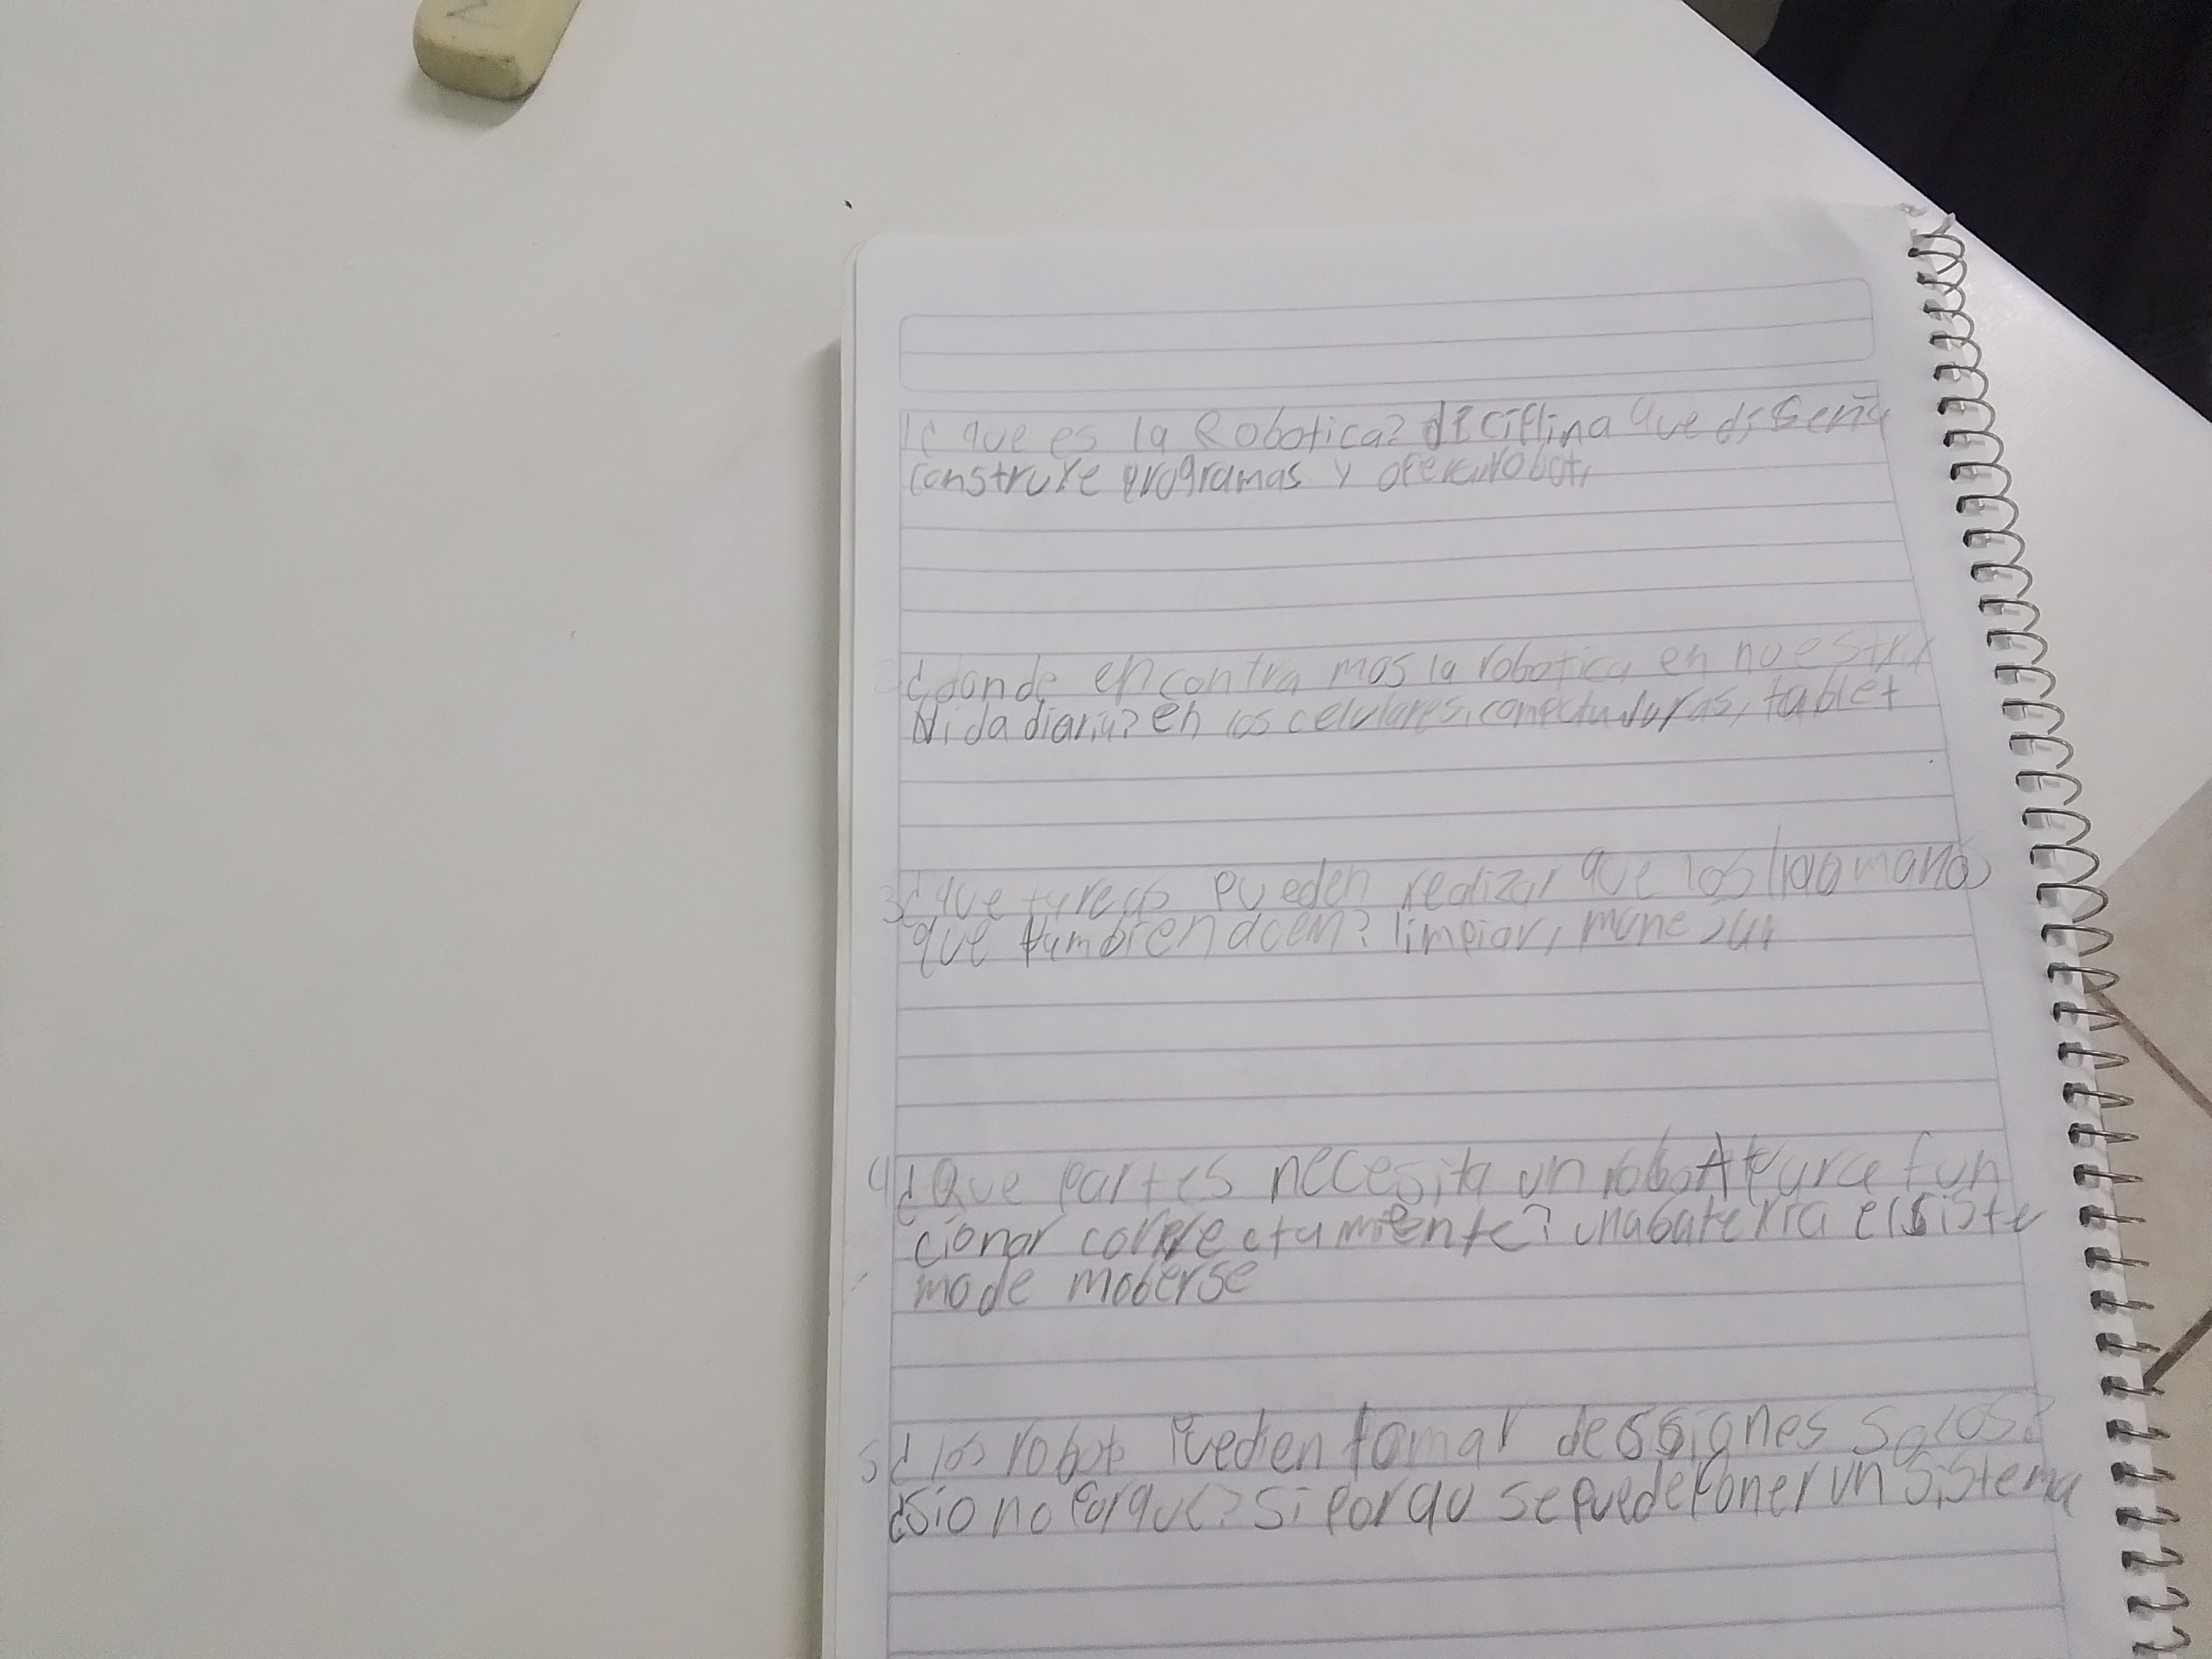 1¿ que es la Robotica? diciplina que diseña
construye programas y opera robots
2¿donde encontra mos la robotica en nuestra
Vida diaria? en los celulares, computadoras, tablet
3¿ que tareas pueden realizar que los humanos
que tambien acen? limpiar, manejar
4¿Que partes necesita un robot para fun
cionar correctamente? una bateria el siste
ma de moberse
5¿ los robots Pueden tomar desiones solos?
¿si o no Porque? Si Por qu se puede Poner un sistema